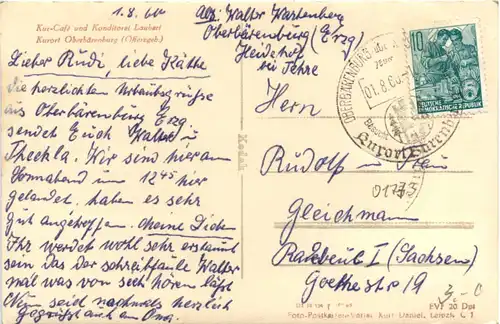 Kur-Café und Konditorei Laubert
Kurort Oberbärenburg (Osterzgeb.)
1.8.60
Abs: Walter Wartenberg
Oberbärenburg (Erzg
Heidehof
bei Fehre
Lieber Rudi, liebe Käthe
die herzlichsten Urlaubsgrüsse
aus Oberbärenburg Erzg.
sendet Euch Walter u
Theckla. Wir sind hier am
Vormittag um 12 45 hier
gelandet. haben es sehr
gut angetroffen. Meine Lieben
Ihr werdet wohl sehr erstaunt
sein das der schreibfaule Walter
mal was von sich hören lässt
Nun seid nochmals herzlich
gegrüsst auch an Oma.
Kodak
OBERBÄRENBURG
01.8.60
Kurort
10
5
DEUTSCHE
DEMOKRATISCHE REPUBLIK
Herrn
Rudolf u Frau
01773
Gleichmann
Radebeul I (Sachsen)
Goethestraße 19
EVP 20 Dpf
Foto-Postkartenverlag Kurt Daniel, Leipzig C 1